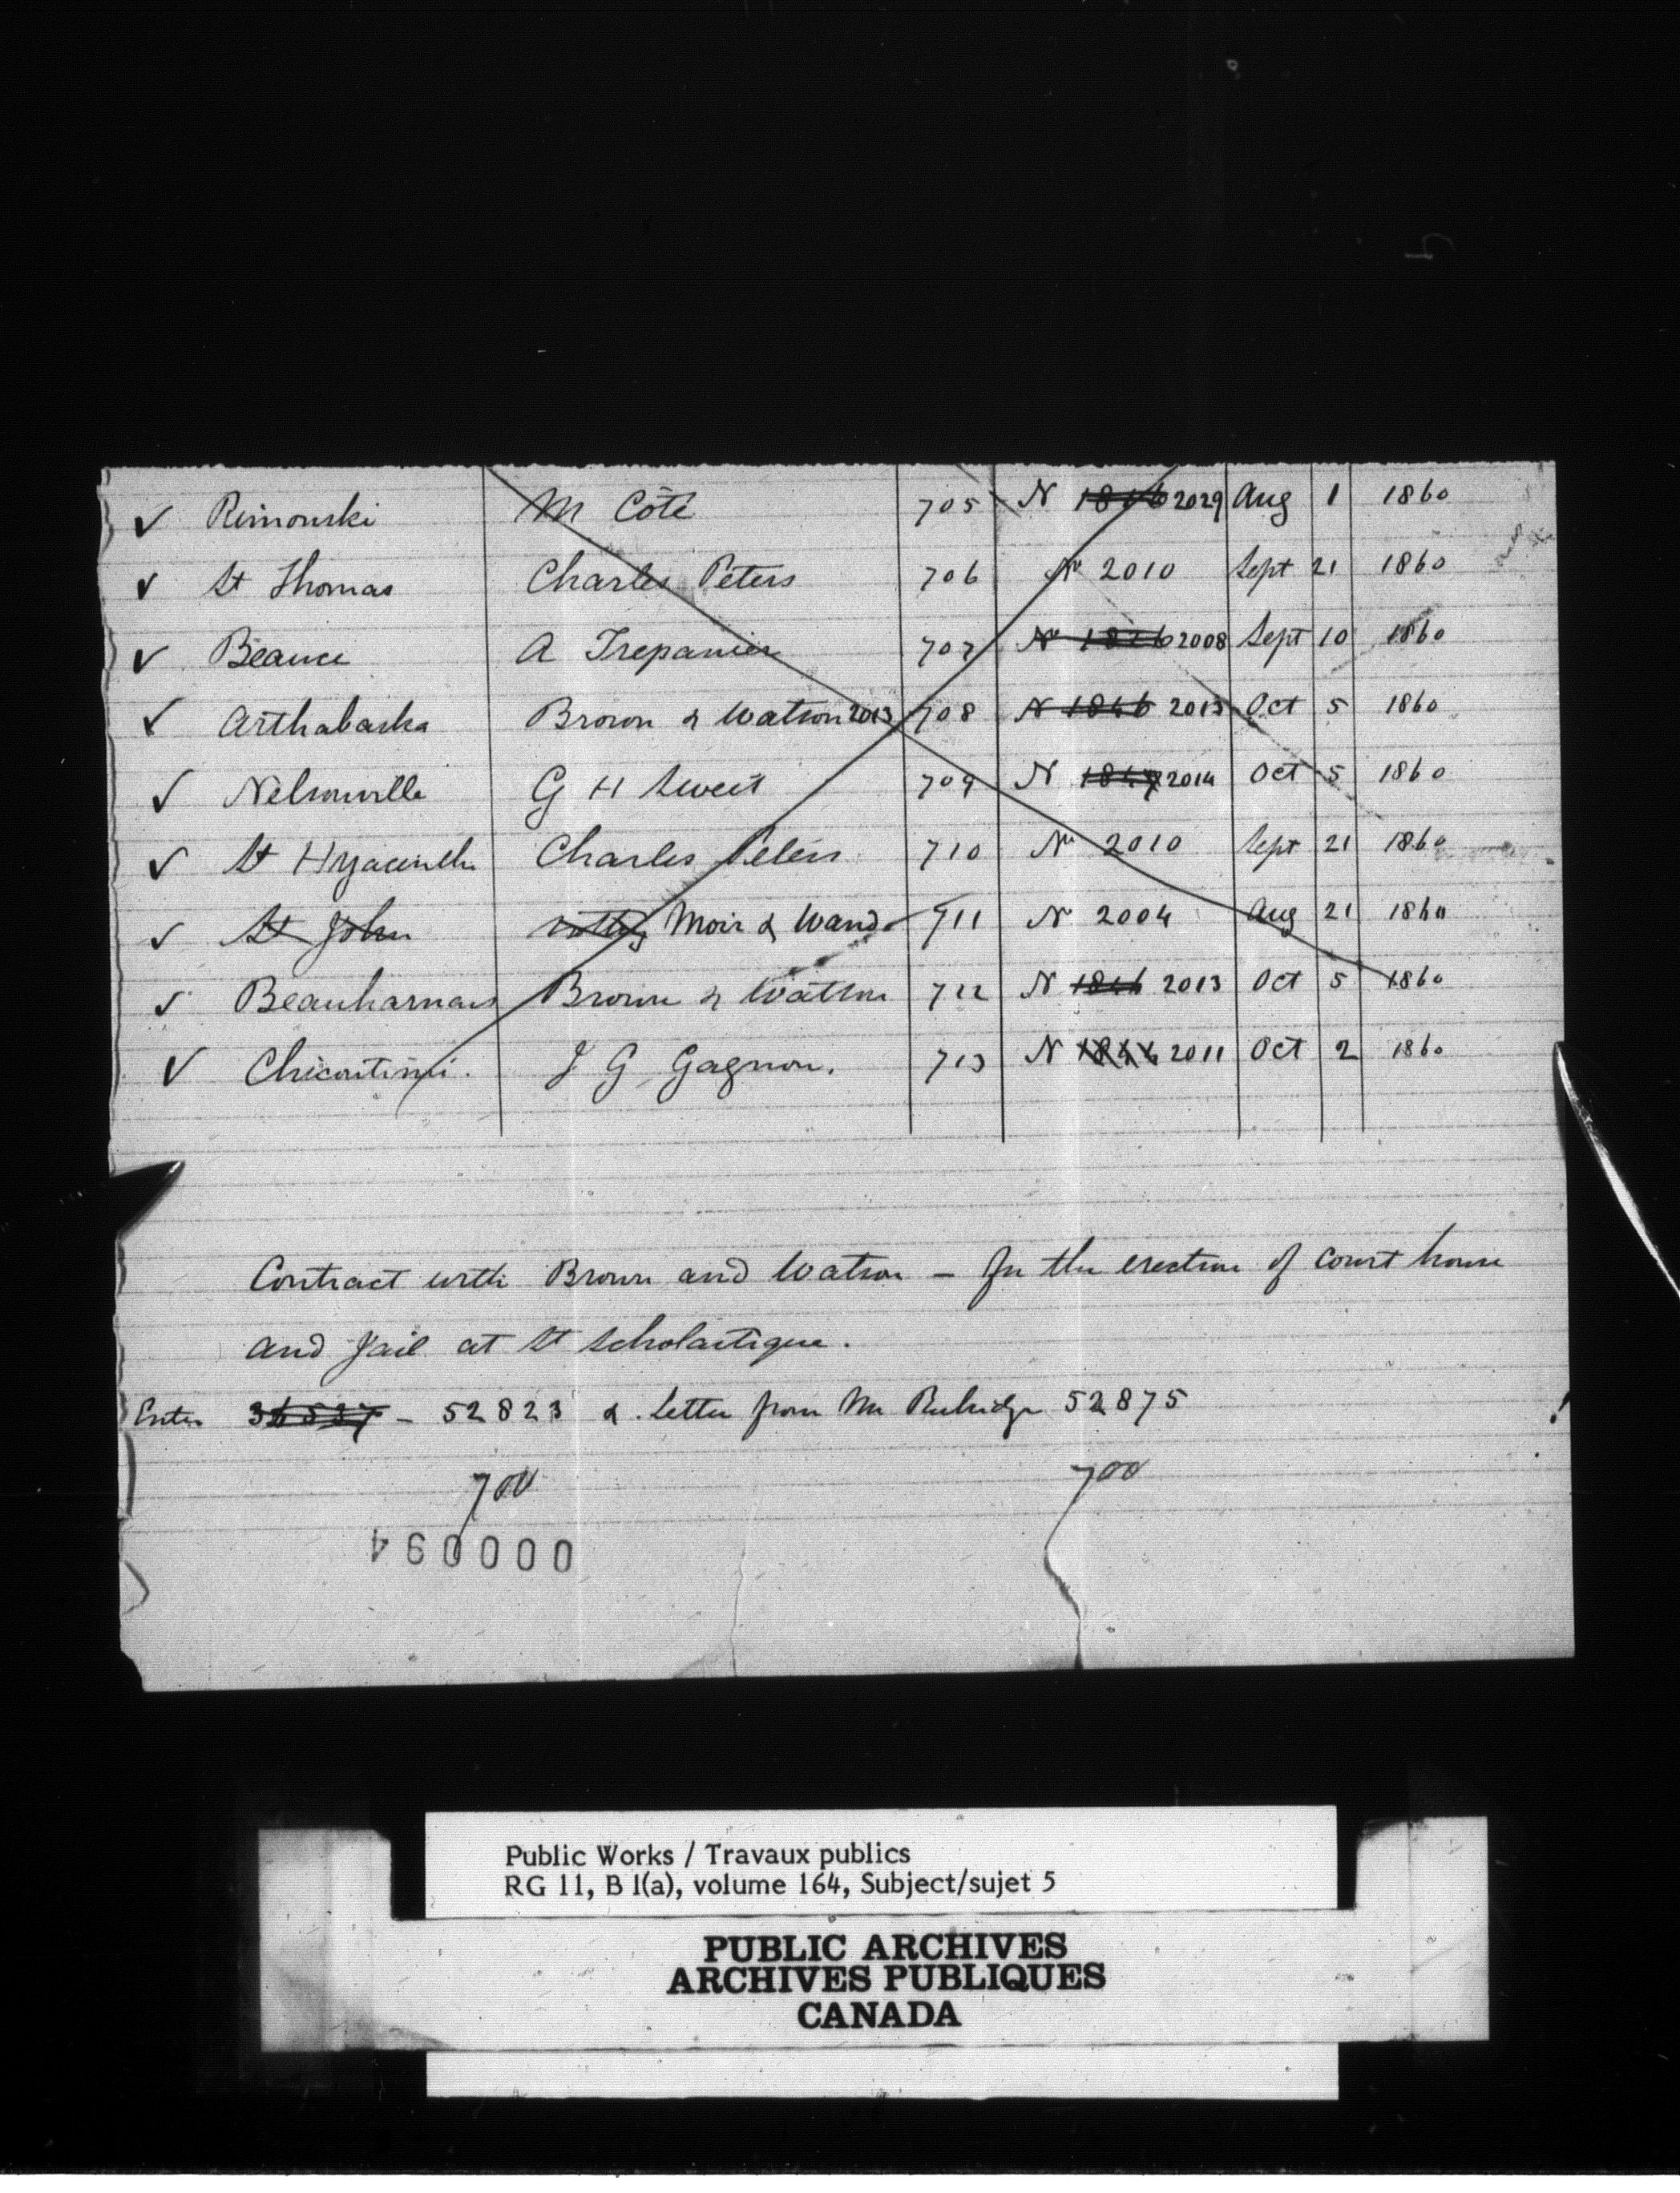 ✓ Rimouski M Côté 705 N 1846 2029 Aug 1 1860
✓ St Thomas Charles Peters 706 No 2010 Sept 21 1860
✓ Beauce A Trepanier 707 No 1826 2008 Sept 10 1860
✓ Arthabaska Brown & Watson 2013 708 N 1846 2013 Oct 5 1860
✓ Nelsonville G H Sweet 709 N 1847 2014 Oct 5 1860
✓ St Hyacinthe Charles Peters 710 No 2010 Sept 21 1860
✓ St John Moir & Wand 711 No 2004 Aug 21 1860
✓ Beauharnais Brown & Watson 712 N 1846 2013 Oct 5 1860
✓ Chicoutimi. J G Gagnon. 713 N 2011 Oct 2 1860
Contract with Brown and Watson – for the erection of court house
and Jail at St Scholastique.
Enter – 52823 & letter from Mr Rubidge 52875
700 700
000094
Public Works / Travaux publics
RG 11, B 1(a), volume 164, Subject/sujet 5
PUBLIC ARCHIVES
ARCHIVES PUBLIQUES
CANADA